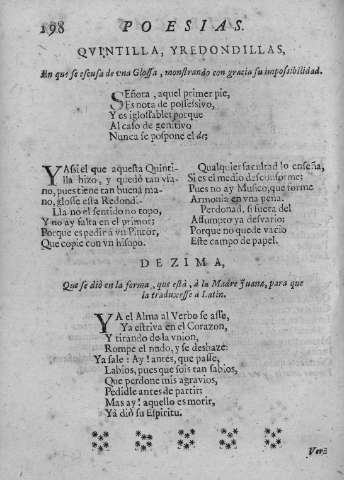 198 POESIAS.
QVINTILLA, Y REDONDILLAS,
En que se escusa de vna Glossa, monstrando con gracia su impossibilidad.
SEñora, aquel primer pie,
Es nota de possessivo,
Y es iglossable; porque
Al caso de genitivo
Nunca se pospone el de;
Y Assi el que aquesta Quinti-
lla hizo, y quedó tan vfa-
no, pues tiene tan buena ma-
no, glosse esta Redondi-
Lla no el sentido no topo,
Y no ay falta en el primor;
Porque es pedir à vn Pintor,
Que copie con vn hisopo.
Qualquier facultad lo enseña,
Si es el medio desconforme;
Pues no ay Musico, que forme
Armonia en vna peña.
Perdonad, si fuera del
Assumpto ya desvario;
Porque no quede vacio
Este campo de papel.
DEZIMA,
Que se diò en la forma, que està, à la Madre Juana, para que
la traduxesse à Latin.
YA el Alma al Verbo se asse,
Ya estriva en el Corazon,
Y tirando de la vnion,
Rompe el nudo, y se deshaze:
Ya sale: Ay! antes, que passe,
Labios, pues que sois tan sabios,
Que perdone mis agravios,
Pedidle antes de partir;
Mas ay! aquello es morir,
Ya diò su Espiritu.